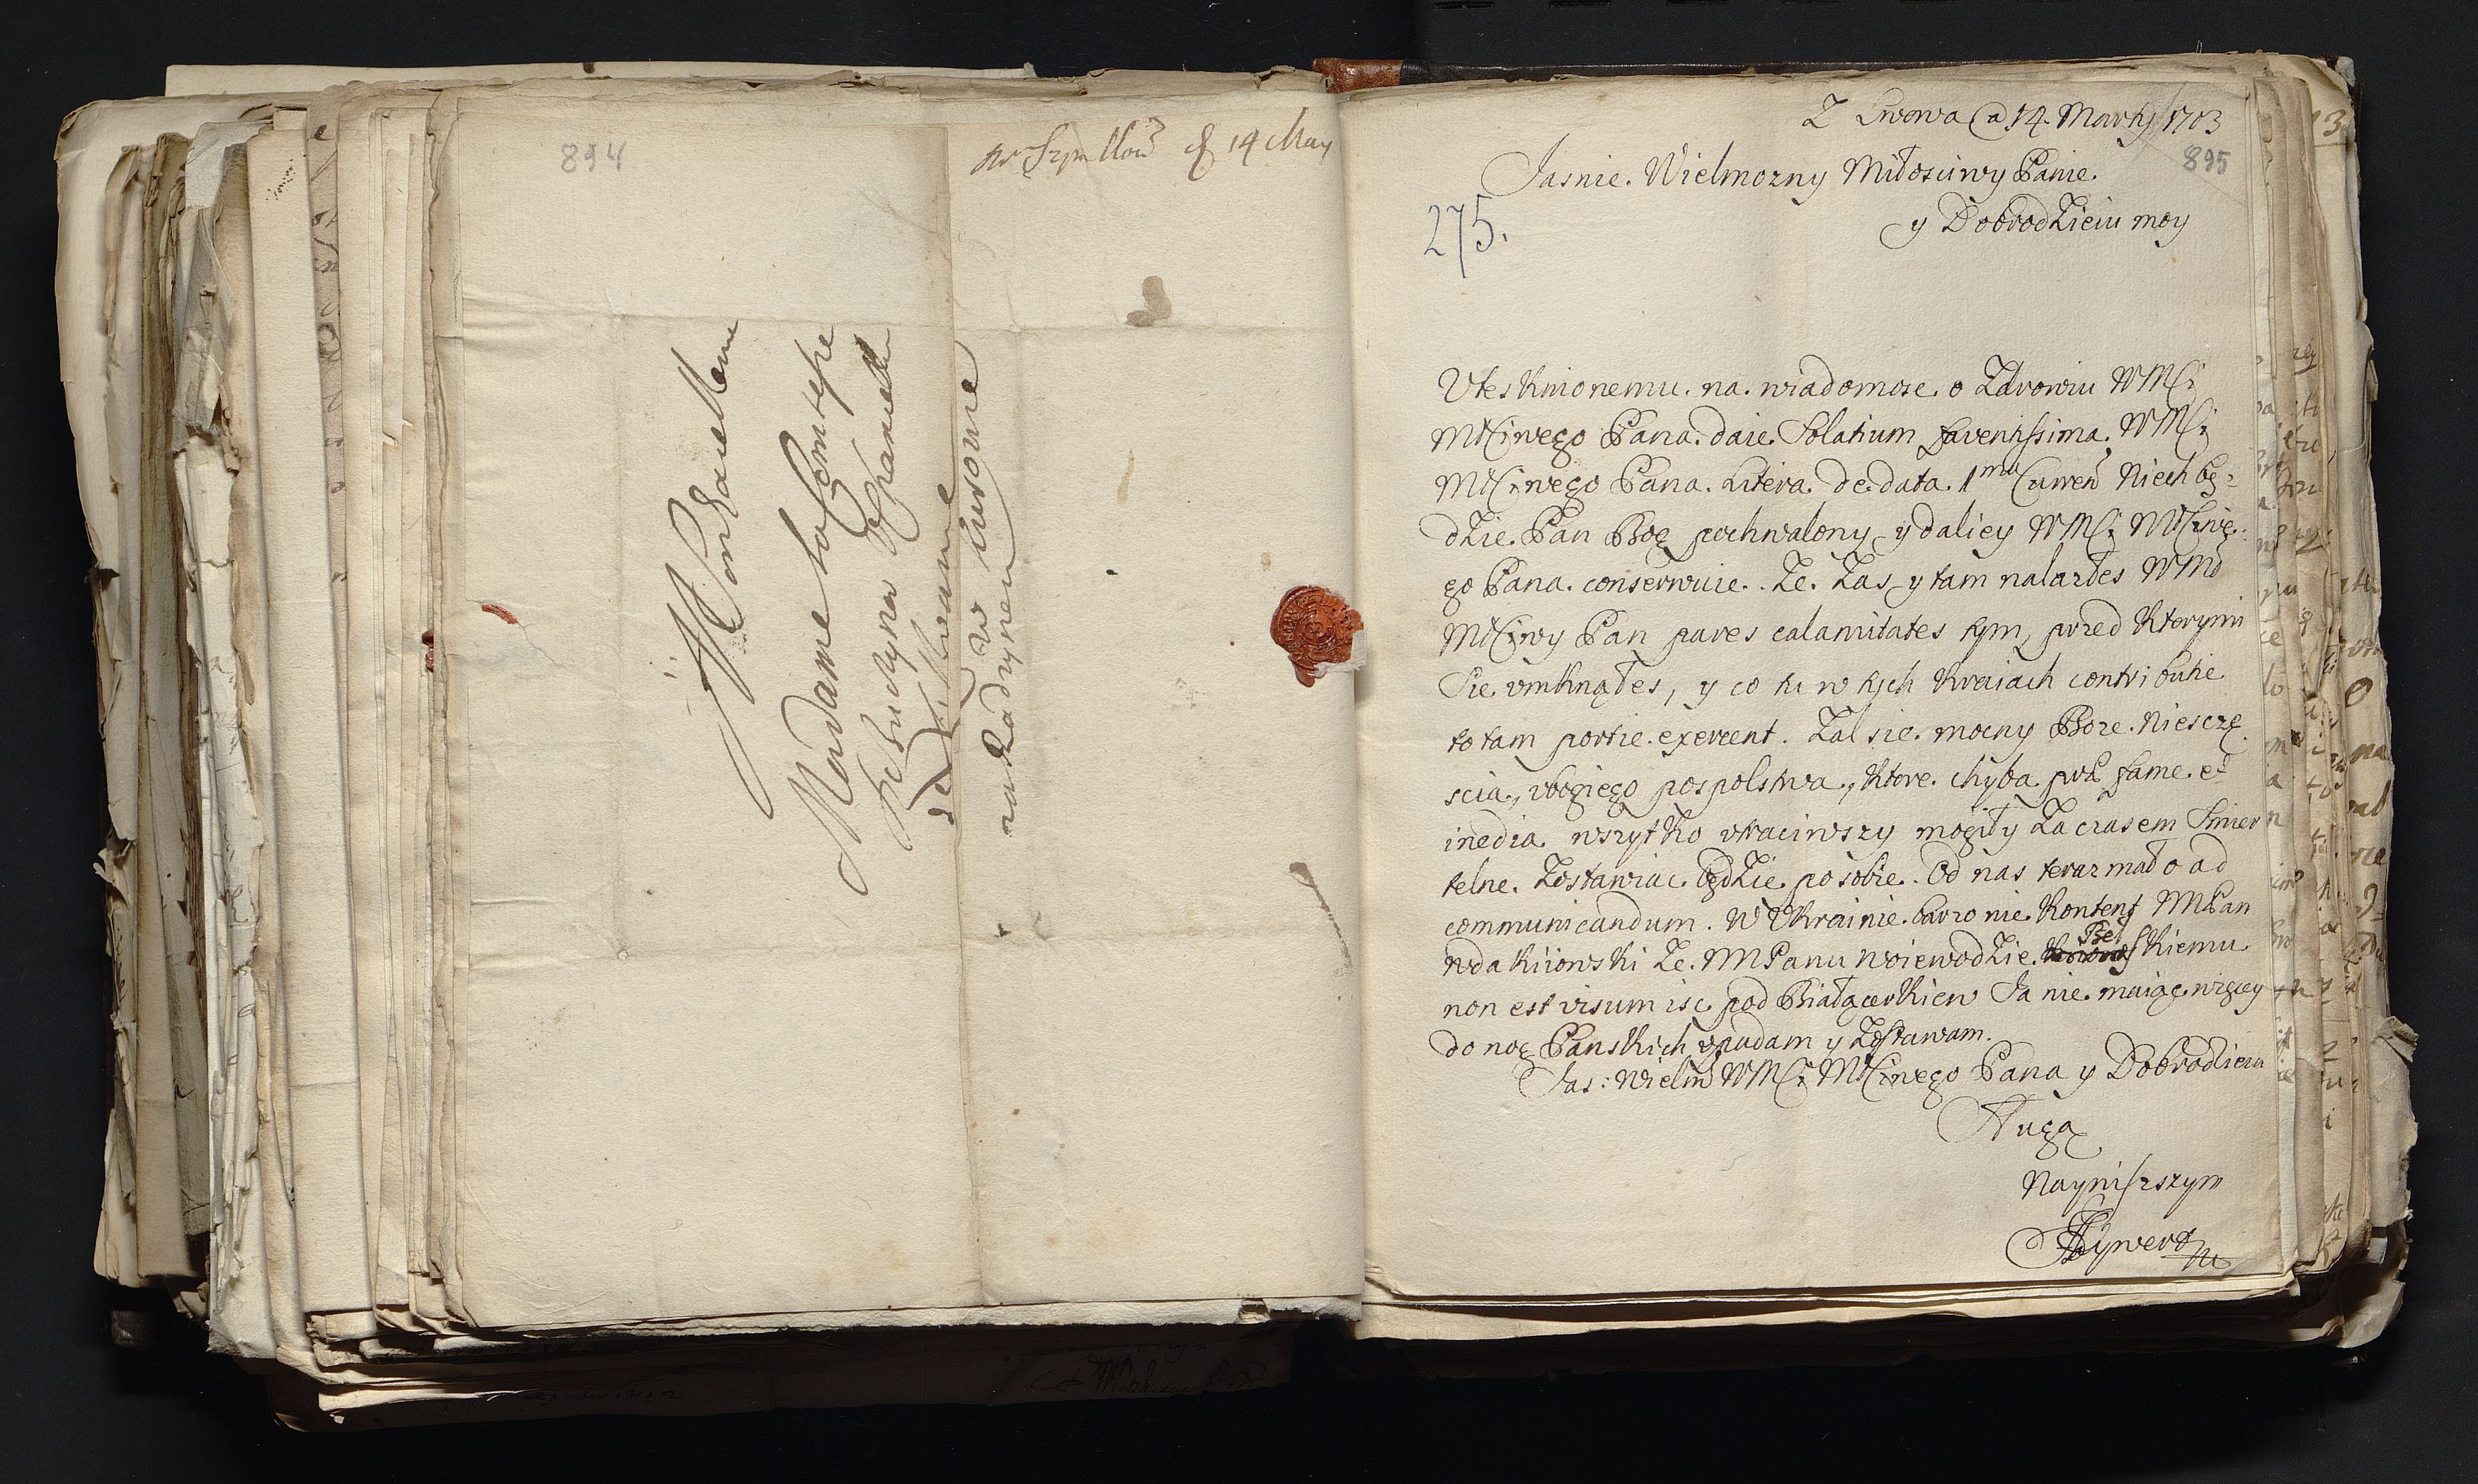 894
14 May
A Son Exellence
Madame la Comtesse
w
895
Z Lwowa a 14 Marty 1703
Jasnie Wielmozny Miłosciwy Panie
y Dobrodzieiu moy
275.
Vtesknionemu na wiadomosc o Zdrowiu WMCi
MCiwego Pana daie Solatium faventissima WMCi
MCiwego Pana Litera de data 1ma Curren Niech bę-
dzie Pan Bog pochwalony y daliey WMCi MCiwe-
go Pana conserwuie. Ze Zas y tam nalazłes WMC
MCiwy Pan pares calamitates tym, przed Ktorymi
Sie vmknąłes, y co tu w tych Kraiach contributie
to tam portie exercent. Zal sie mocny Boze niesczę
scia, vbogiego pospolstwa, Ktore chyba prae fame et
inedia wszytko vtraciwszy mogiły Za czasem Smier
telne Zostawiac będzie po sobie. Od nas teraz mało ad
communicandum. W Vkrainie barzo nie Kontent MPan
wda Kiiowski Ze MPanu woiewodzie Bełskiemu
non est visum isc pod Białącerkiew Ja nie maiąc więcey
do nog Panskich vpadam y Zostawam.
Jas: Wielm WMCi MCiwego Pana y Dobrodzieia
Sługą
Nayniszszym